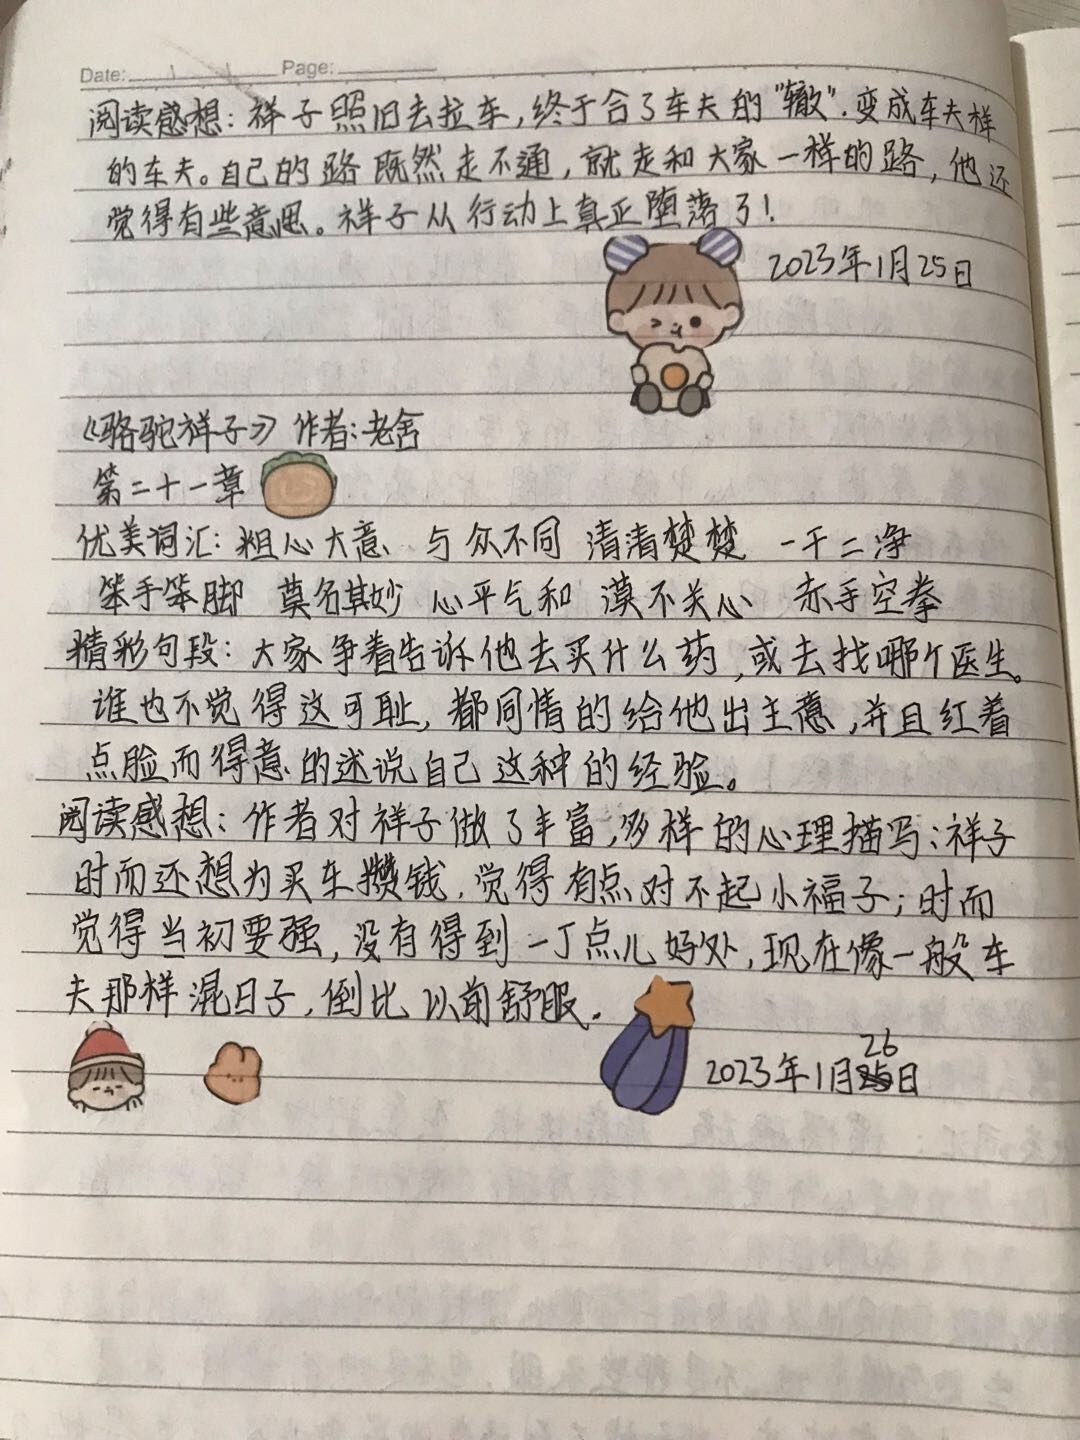 Date: Page:
阅读感想：祥子照旧去拉车，终于合了车夫的“辙”.变成车夫样
的车夫。自己的路既然走不通，就走和大家一样的路，他还
觉得有些意思。祥子从行动上真正堕落了！
2023年1月25日
《骆驼祥子》作者：老舍
第二十一章
优美词汇：粗心大意 与众不同 清清楚楚 一干二净
笨手笨脚 莫名其妙 心平气和 漠不关心 赤手空拳
精彩句段：大家争着告诉他去买什么药，或去找哪个医生。
谁也不觉得这可耻，都同情的给他出主意，并且红着
点脸而得意的述说自己这种的经验。
阅读感想：作者对祥子做了丰富，多样的心理描写：祥子
时而还想为买车攒钱，觉得有点对不起小福子；时而
觉得当初要强，没有得到一丁点儿好处，现在像一般车
夫那样混日子，倒比以前舒服.
2023年1月26日